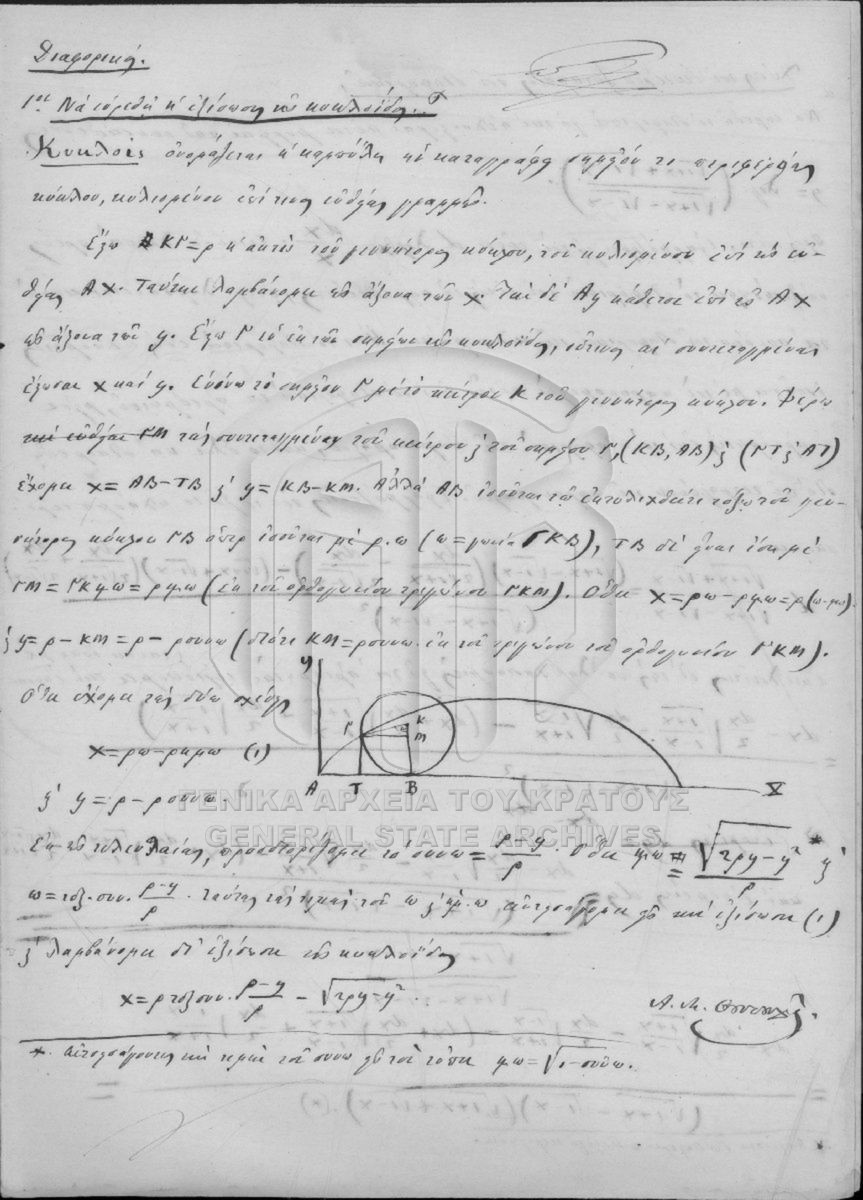 Διαφορικά.
1ον Νὰ εὑρεθῇ ἡ ἐξίσωσις τῆς κυκλοΐδος.
Κυκλοῒς ὀνομάζεται ἡ καμπύλη ἣν καταγράφει σημεῖόν τι περιφερείας
κύκλου, κυλιομένου ἐπί τινος εὐθείας γραμμῆς.
Ἔστω ΚΓ=ρ ἡ ἀκτὶς τοῦ γεννήτορος κύκλου, τοῦ κυλιομένου ἐπὶ τῆς εὐ-
θείας ΑΧ. Ταύτην λαμβάνομεν ὡς ἄξονα τῶν χ. Τὴν δὲ Αy κάθετον ἐπὶ τὴν ΑΧ
ὡς ἄξονα τῶν y. Ἔστω Γ ἓν ἐκ τῶν σημείων τῆς κυκλοΐδος, οὗτινος αἱ συντεταγμέναι
ἔστωσαν χ καὶ y. Ἑνόνω τὸ σημεῖον Γ μὲ τὸ κέντρον Κ τοῦ γεννήτορος κύκλου. Φέρω
τὴν εὐθεῖαν ΓΜ τὰς συντεταγμένας τοῦ κέντρου ϗ τοῦ σημείου Γ, (ΚΒ, ΑΒ) ϗ (ΓΤ ϗ ΑΤ)
ἔχομεν χ= ΑΒ-ΤΒ ϗ y= ΚΒ-ΚΜ. Ἀλλὰ ΑΒ ἰσοῦται τῷ ἐκτυλιχθέντι τόξῳ τοῦ γεν-
νήτορος κύκλου ΓΒ ὅπερ ἰσοῦται μὲ ρ.ω (ω=γωνία ΓΚΒ), ΤΒ δὲ εἶναι ἴση μὲ
ΓΜ = ΓΚημω = ρημω (ἐκ τοῦ ὀρθογωνίου τριγώνου ΓΚΜ). Ὅθεν χ=ρω-ρημω=ρ(ω-ημω)
ϗ y= ρ-ΚΜ = ρ-ρσυνω (διότι ΚΜ=ρσυνω ἐκ τοῦ τριγώνου τοῦ ὀρθογωνίου ΓΚΜ).
Ὅθεν ἔχομεν τὰς δύω σχέσεις
χ=ρω-ρημω (1)
ϗ y=ρ-ρσυνω.
y Γ Κ Μ Α Τ Β Χ
ΓΕΝΙΚΑ ΑΡΧΕΙΑ ΤΟΥ ΚΡΑΤΟΥΣ
GENERAL STATE ARCHIVES
Ἐκ τῆς τελευταίας, προσδιορίζομεν τὸ συνω = (ρ-y)/ρ. Ὅθεν ημω = √(2ρy-y²)/ρ * ϗ
ω=τοξ.συν. (ρ-y)/ρ. Ταύτας τὰς τιμὰς τοῦ ω ϗ ημ.ω ἀντεισάγομεν εἰς τὴν ἐξίσωσιν (1)
ϗ λαμβάνομεν δι' ἐξίσωσιν τῆς κυκλοΐδος
χ=ρτοξσυν. (ρ-y)/ρ - √(2ρy-y²).
Α. Μ.
*. τὴν τιμὴν τοῦ συνω εἰς τὸν τύπον ημω=√(1-συν²ω).